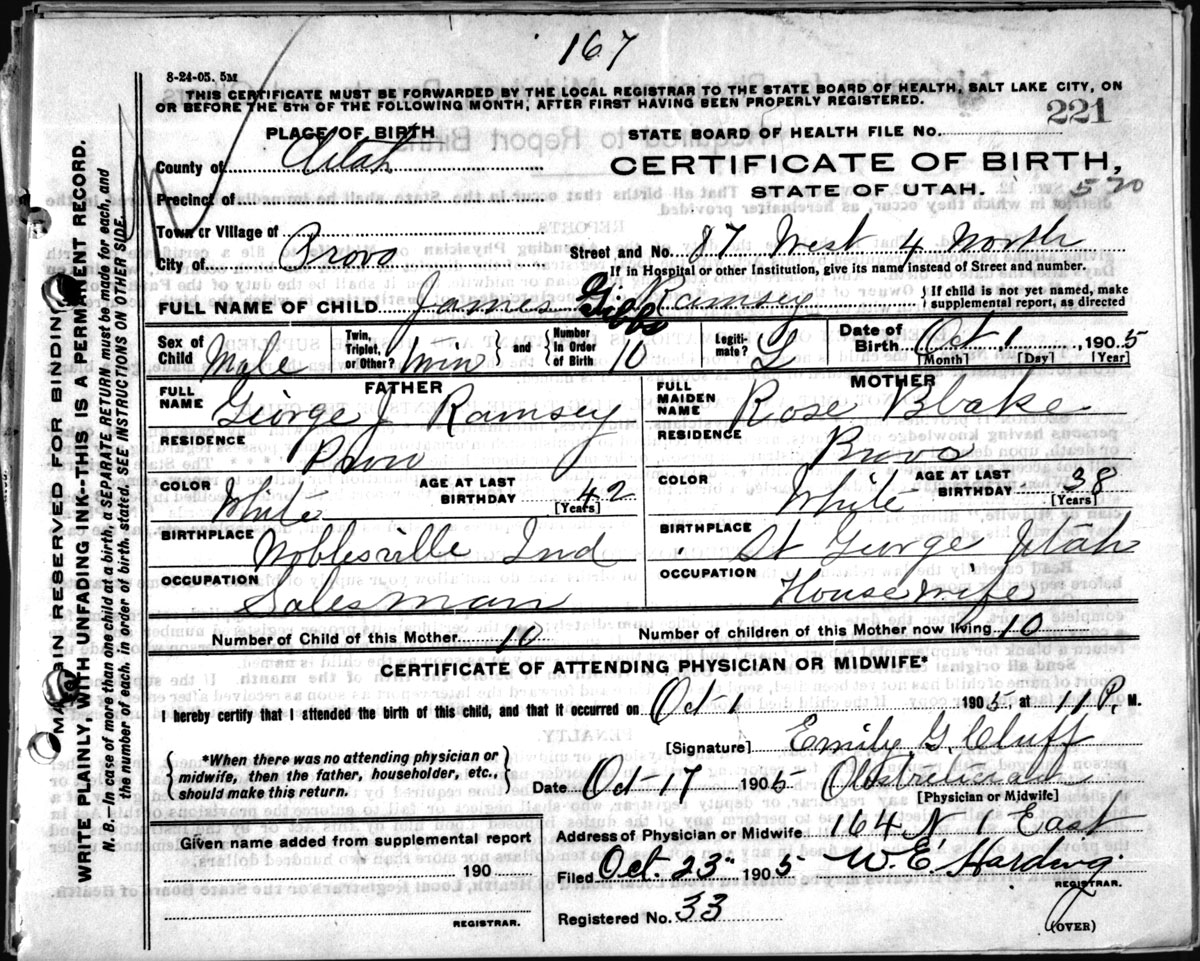 167
8-24-05. 5M
THIS CERTIFICATE MUST BE FORWARDED BY THE LOCAL REGISTRAR TO THE STATE BOARD OF HEALTH, SALT LAKE CITY, ON
OR BEFORE THE 5TH OF THE FOLLOWING MONTH, AFTER FIRST HAVING BEEN PROPERLY REGISTERED.
221
PLACE OF BIRTH
STATE BOARD OF HEALTH FILE NO.
County of Utah
CERTIFICATE OF BIRTH,
STATE OF UTAH.
520
Precinct of
Town or Village of
City of Provo
Street and No. 87 West 4 North
If in Hospital or other Institution, give its name instead of Street and number.
FULL NAME OF CHILD James Gibbs Ramsey
If child is not yet named, make
supplemental report, as directed
Sex of Child Male
Twin, Triplet, or Other? and Number in Order of Birth 10
Legitimate? L
Date of Birth Oct 1 1905
[Month] [Day] [Year]
FATHER
FULL NAME George J. Ramsey
RESIDENCE Provo
COLOR White
AGE AT LAST BIRTHDAY 42 [Years]
BIRTHPLACE Noblesville Ind
OCCUPATION Salesman
MOTHER
FULL MAIDEN NAME Rose Blake
RESIDENCE Provo
COLOR White
AGE AT LAST BIRTHDAY 38 [Years]
BIRTHPLACE St George, Utah
OCCUPATION Housewife
Number of Child of this Mother 10 Number of children of this Mother now living 10
CERTIFICATE OF ATTENDING PHYSICIAN OR MIDWIFE*
I hereby certify that I attended the birth of this child, and that it occurred on Oct-1 1905 at 11 P. M.
[Signature] Emily G. Cluff
*When there was no attending physician or
midwife, then the father, householder, etc.,
should make this return.
Date Oct-17 1905
[Physician or Midwife]
Address of Physician or Midwife 164 N 1 East
Given name added from supplemental report
190
REGISTRAR.
Filed Oct. 23 1905 W. E. Harding.
REGISTRAR.
Registered No. 33
(OVER)
MARGIN RESERVED FOR BINDING
WRITE PLAINLY, WITH UNFADING INK--THIS IS A PERMANENT RECORD.
N. B.—In case of more than one child at a birth, a SEPARATE RETURN must be made for each, and
the number of each, in order of birth, stated. SEE INSTRUCTIONS ON OTHER SIDE.